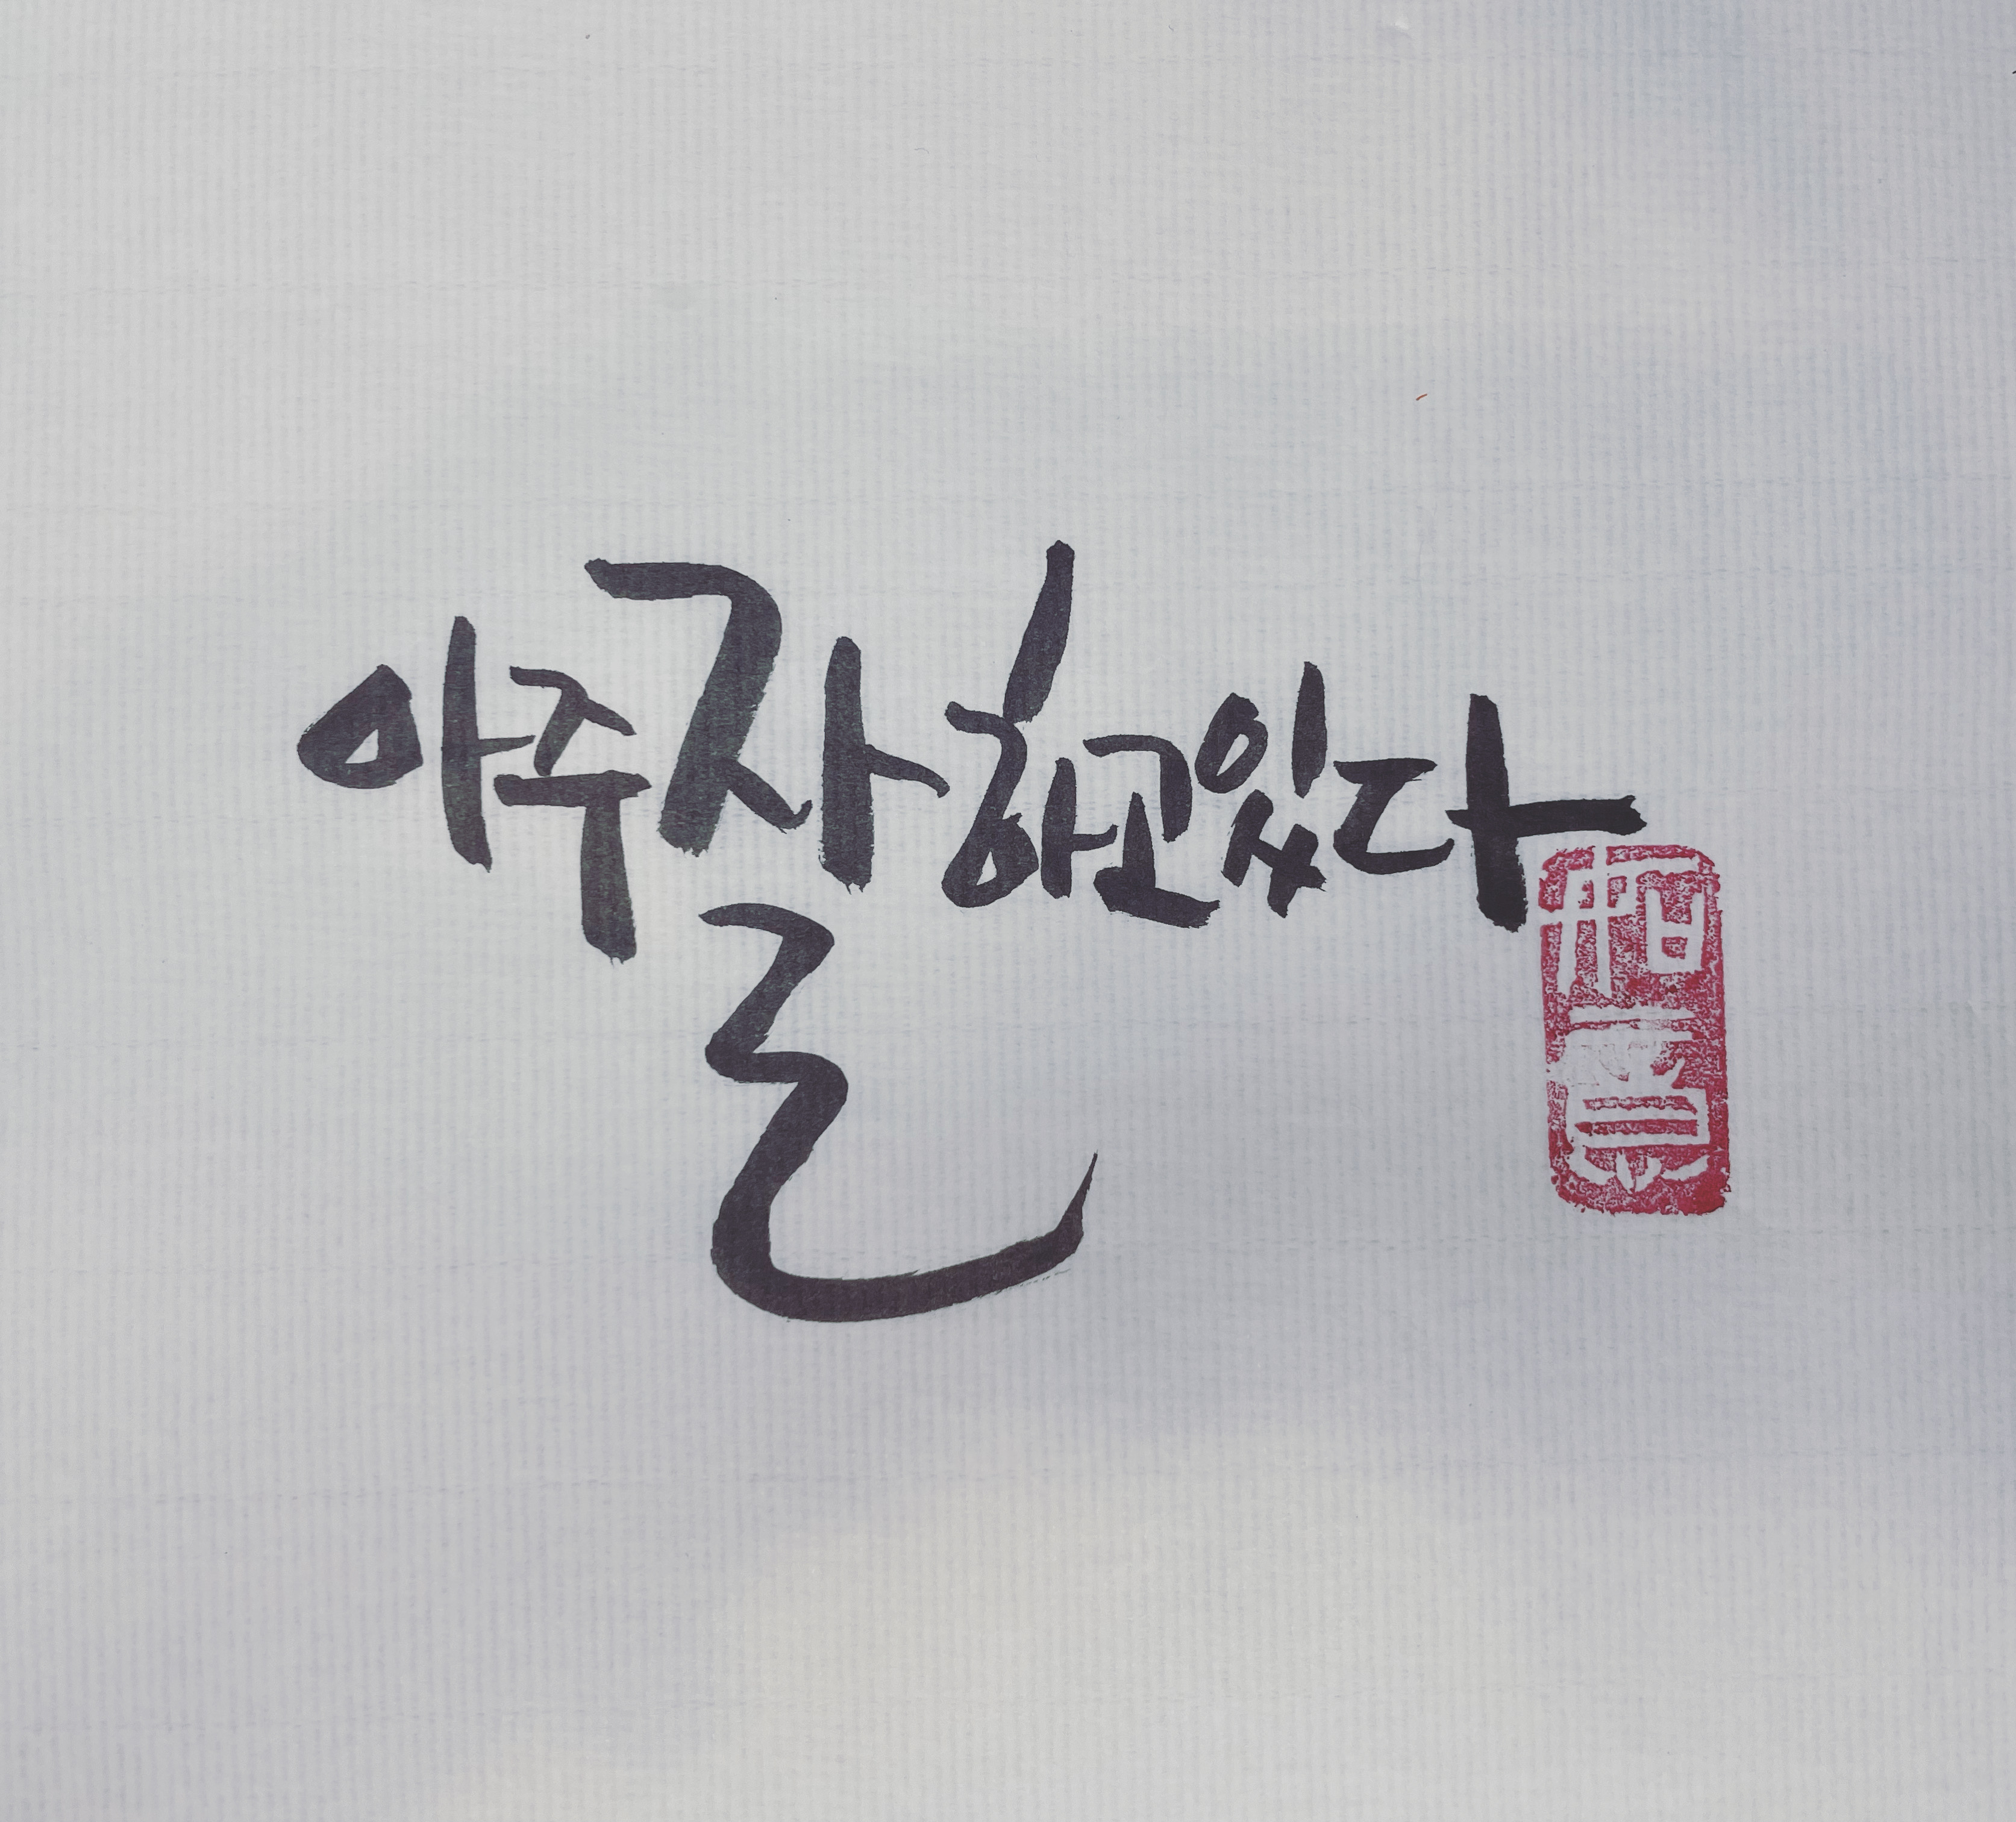 아주 잘하고 있다